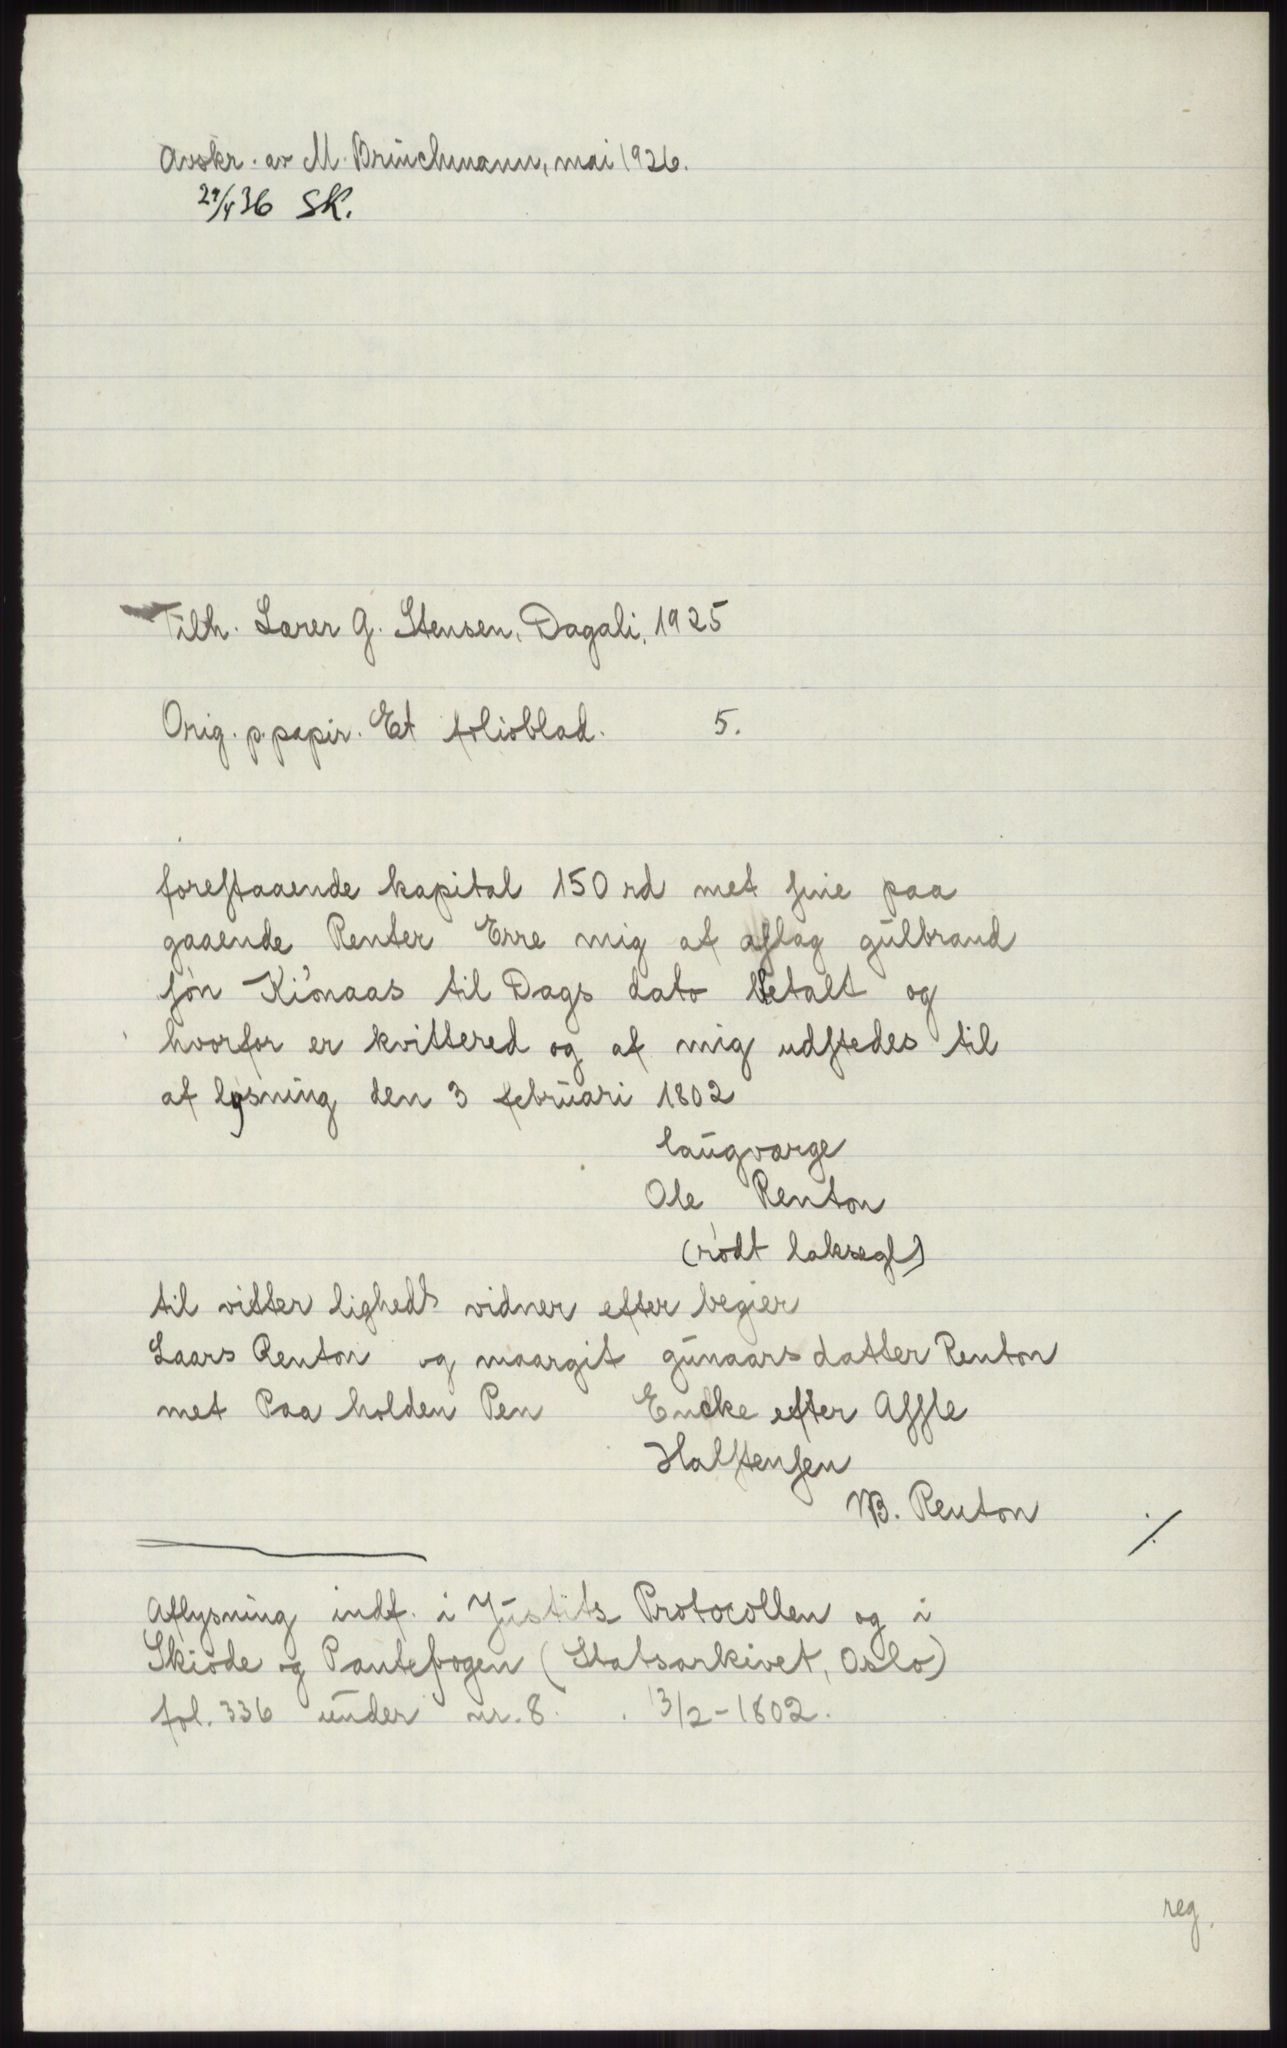 Avskr. av M. Brinchmann, mai 1926.
29/4 36 SK.
Tilh. Lærer G. Stensen, Dagali, 1925
Orig. p. papir. Et folioblad. 5.
forestaaende kapital 150 rd met sine paa
gaaende Renter Erre mig af aslag gulbrand
søn Kiønaas til Dags dato betalt og
hvorfor er kvittered og af mig udstedes til
af lysning den 3 februari 1802
laugværge
Ole Renton
(rødt laksegl)
til vitterligheds vidner efter begier
Laars Renton og maargit gunaars datter Renton
met Paa holden Pen Encke efter Assle
Halstensen
NB. Renton
./.
Aflysning indf. i Justits Protocollen og i
Skiøde og Pantebogen (Statsarkivet, Oslo)
fol. 336 under nr. 8. 13/2-1802.
reg.